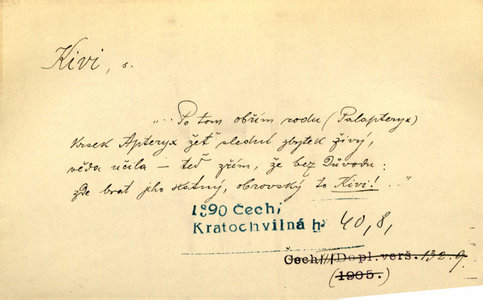 Kivi, s.
„... Po tom obřím rodu (Palapteryx)
krsek Apteryx žeť slední zbytek živý,
věda učila — teď zřím, že bez Důvodu:
zde brat jho statný, obrovský to Kivi! . .“
1890 Čech,
Kratochvilná h. 40, 8,
Čech///Dopl.verš. 132.9
(1905.)